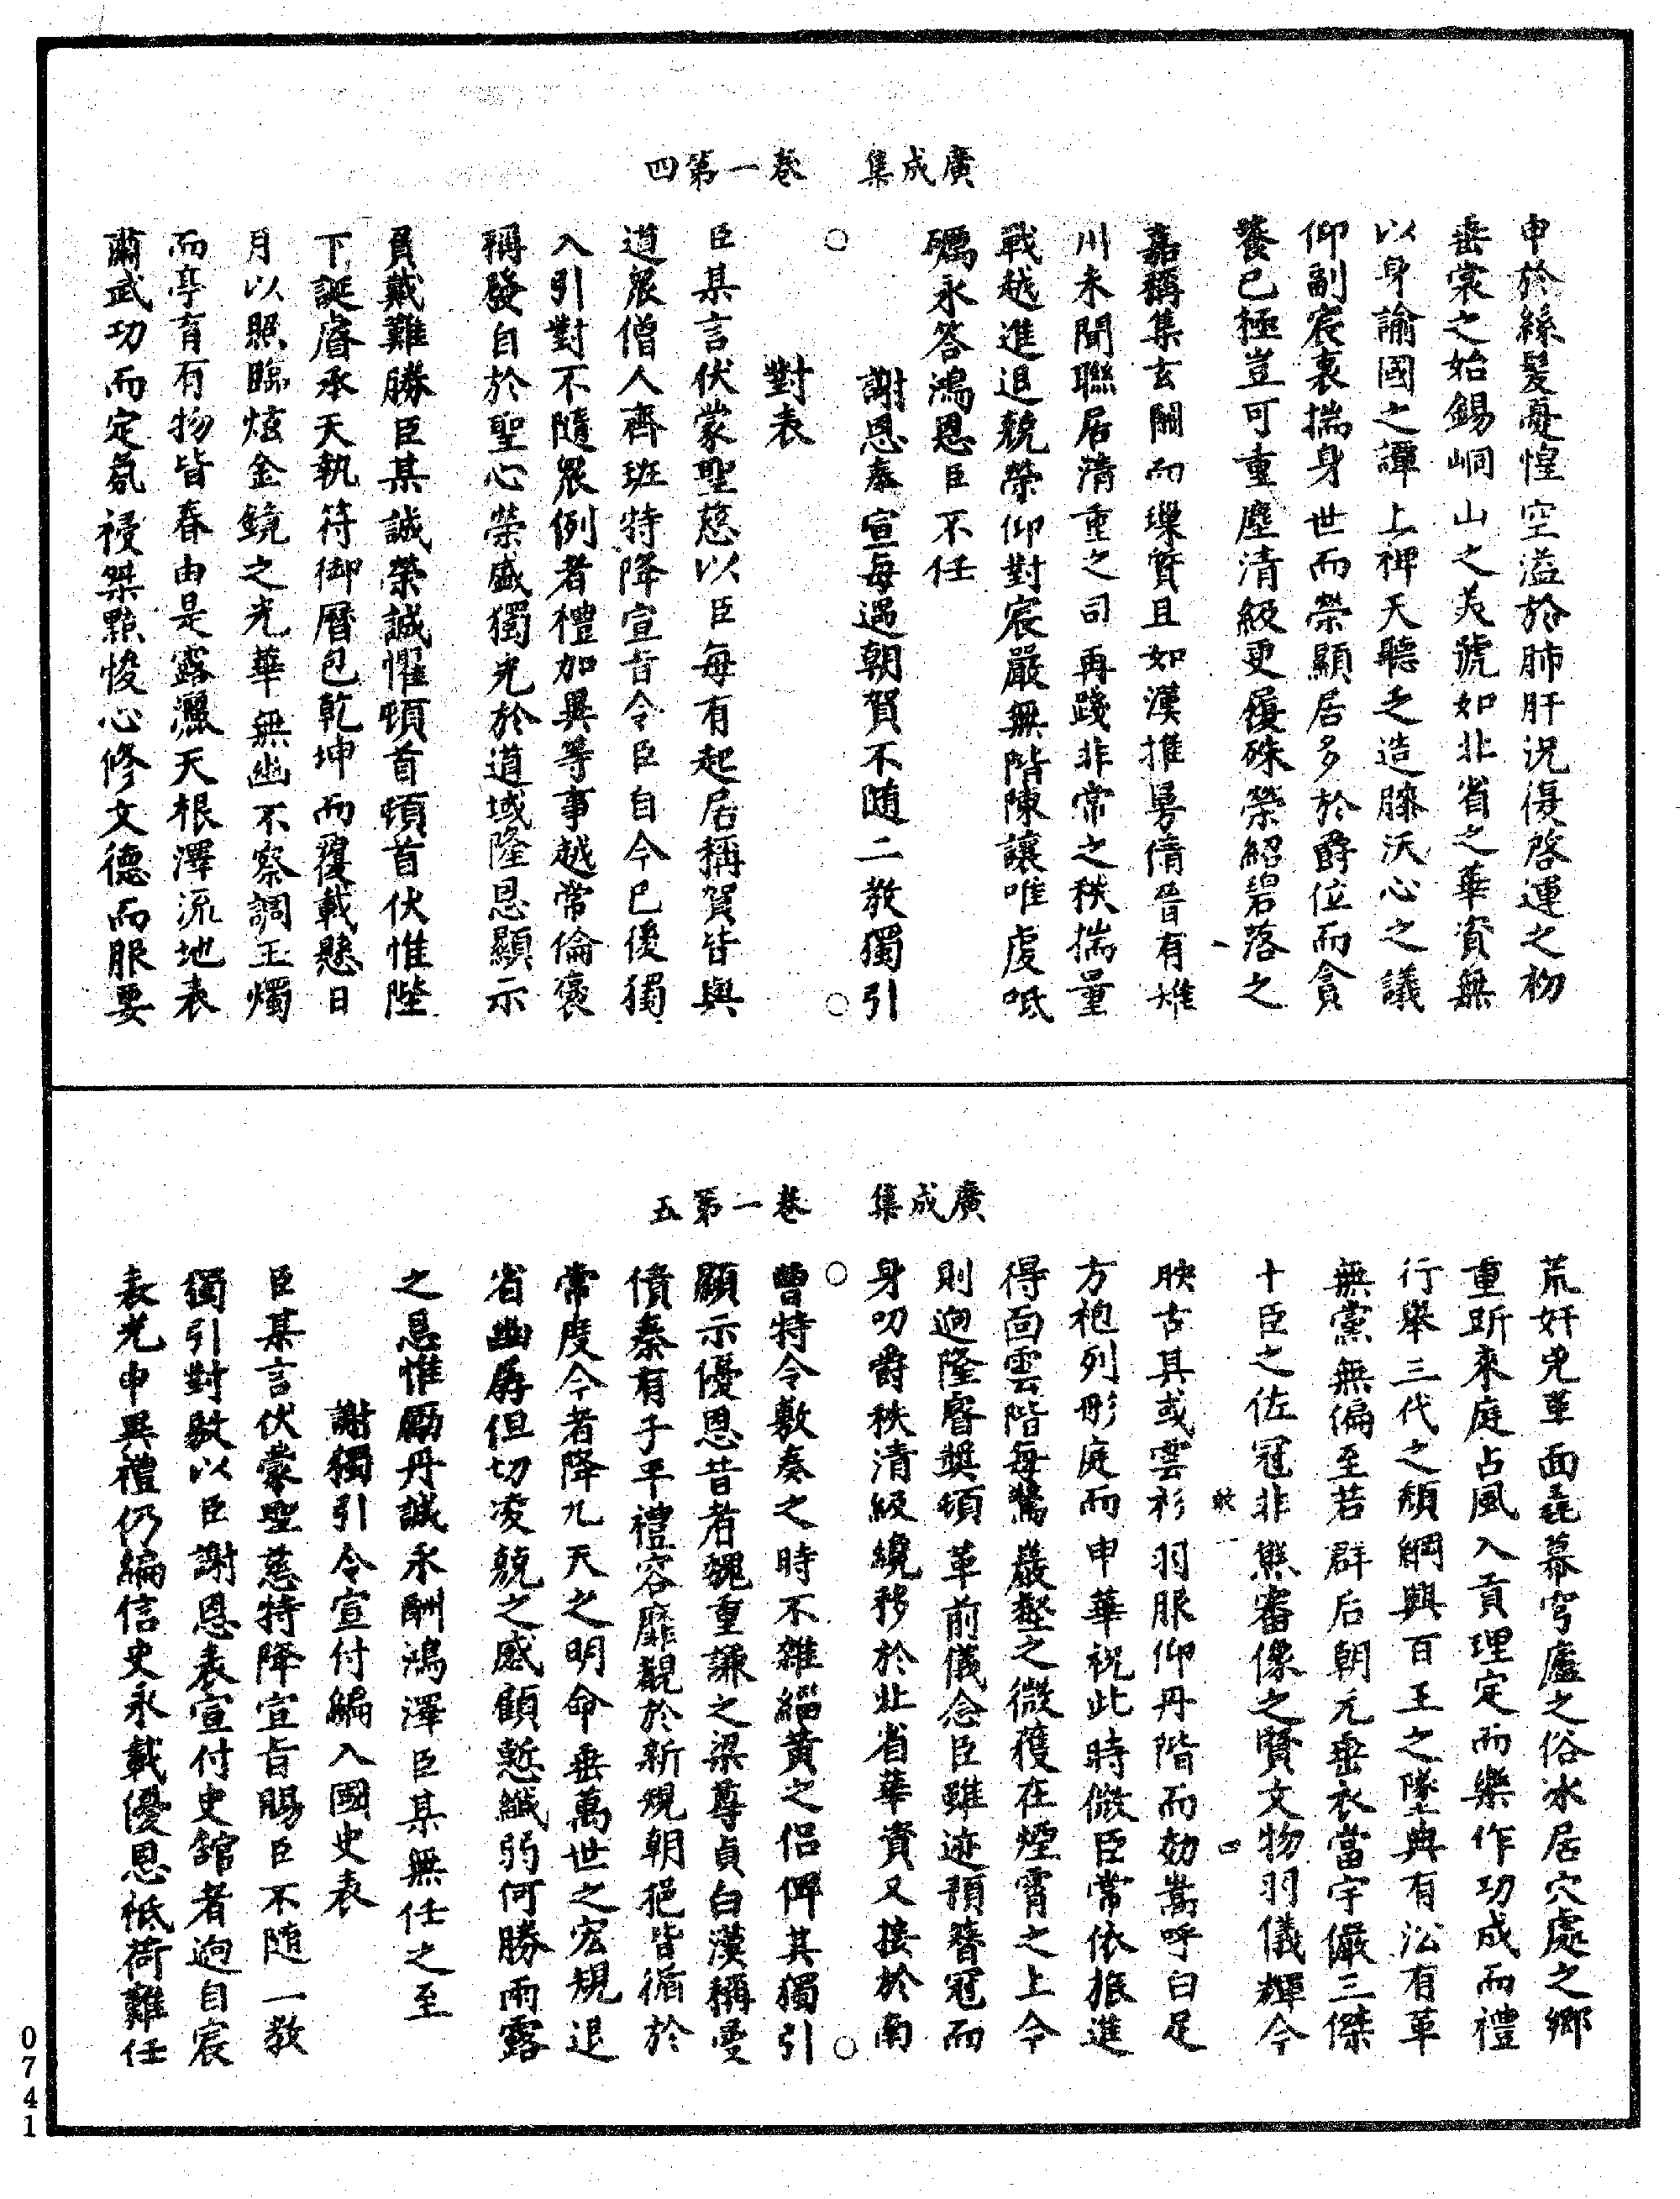 廣成集　卷一第四
申於絲髮憂惶空溢於肺肝況侵啓運之初
垂裳之始錫峒山之美號如北省之華資無
以身諭國之譚上裨天聽乏造膝沃心之議
仰副宸衷揣身世而榮顯居多於爵位而貪
饕已極豈可重塵清級更履殊榮紹碧落之
嘉稱集玄關而璅質且如漢推㫄倩晉有雉
川未聞聯居清重之司再踐非常之秩揣量
戰越進退兢榮仰對宸嚴無階陳讓唯虔吒
礪永答鴻恩臣不任
謝恩奉宣每遇朝賀不随二教獨引
對表
臣某言伏蒙聖慈以臣每有起居稱賀皆與
道眾僧人齊班特降宣旨令臣自今已後獨
入引對不隨眾例者禮加異等事越常倫褒
稱發自於聖心榮盛獨光於道域隆恩顯示
負戴難勝臣某誠榮誠懼頓首頓首伏惟陛
下誕膺承天執符御曆包乾坤而覆載懸日
月以照臨炫金鏡之光華無幽不察調玉燭
而亭育有物皆春由是露瀼天根澤流地表
肅武功而定氛祲桀黠悛心修文德而服要
廣成集　卷一第五
荒奸兇革面毳幕穹廬之俗冰居穴處之鄉
重䜣來庭占風入貢理定而樂作功成而禮
行舉三代之頹綱興百王之墜典有沿有革
無黨無偏至若群后朝元垂衣當宇儼三傑
十臣之佐冠非熊審像之賢文物羽儀輝今
映古其或雲衫羽服仰丹階而効嵩呼白足
方袍列彤庭而申華祝此時微臣常依振進
得面雲階每驚嚴壑之微獲在煙霄之上今
則逈隆睿獎頓革前儀念臣雖迹預簪冠而
身叨爵秩清級纔移於北省華資又接於南
曾特令敷奏之時不雜緇黃之侶俾其獨引
顯示優恩昔者魏重謙之梁尊貞白漢稱曼
倩秦有子平禮容靡觀於新規朝挹皆循於
常度今者降九天之明命垂萬世之宏規退
省幽孱但切凌兢之感顧慙纖弱何勝雨露
之恩惟勵丹誠永酬鴻澤臣某無任之至
謝獨引令宣付編入國史表
臣某言伏蒙聖慈特降宣旨賜臣不随一教
獨引對敭以臣謝恩表宣付史館者逈自宸
表光申異禮仍編信史永載優恩袛荷難任
0741